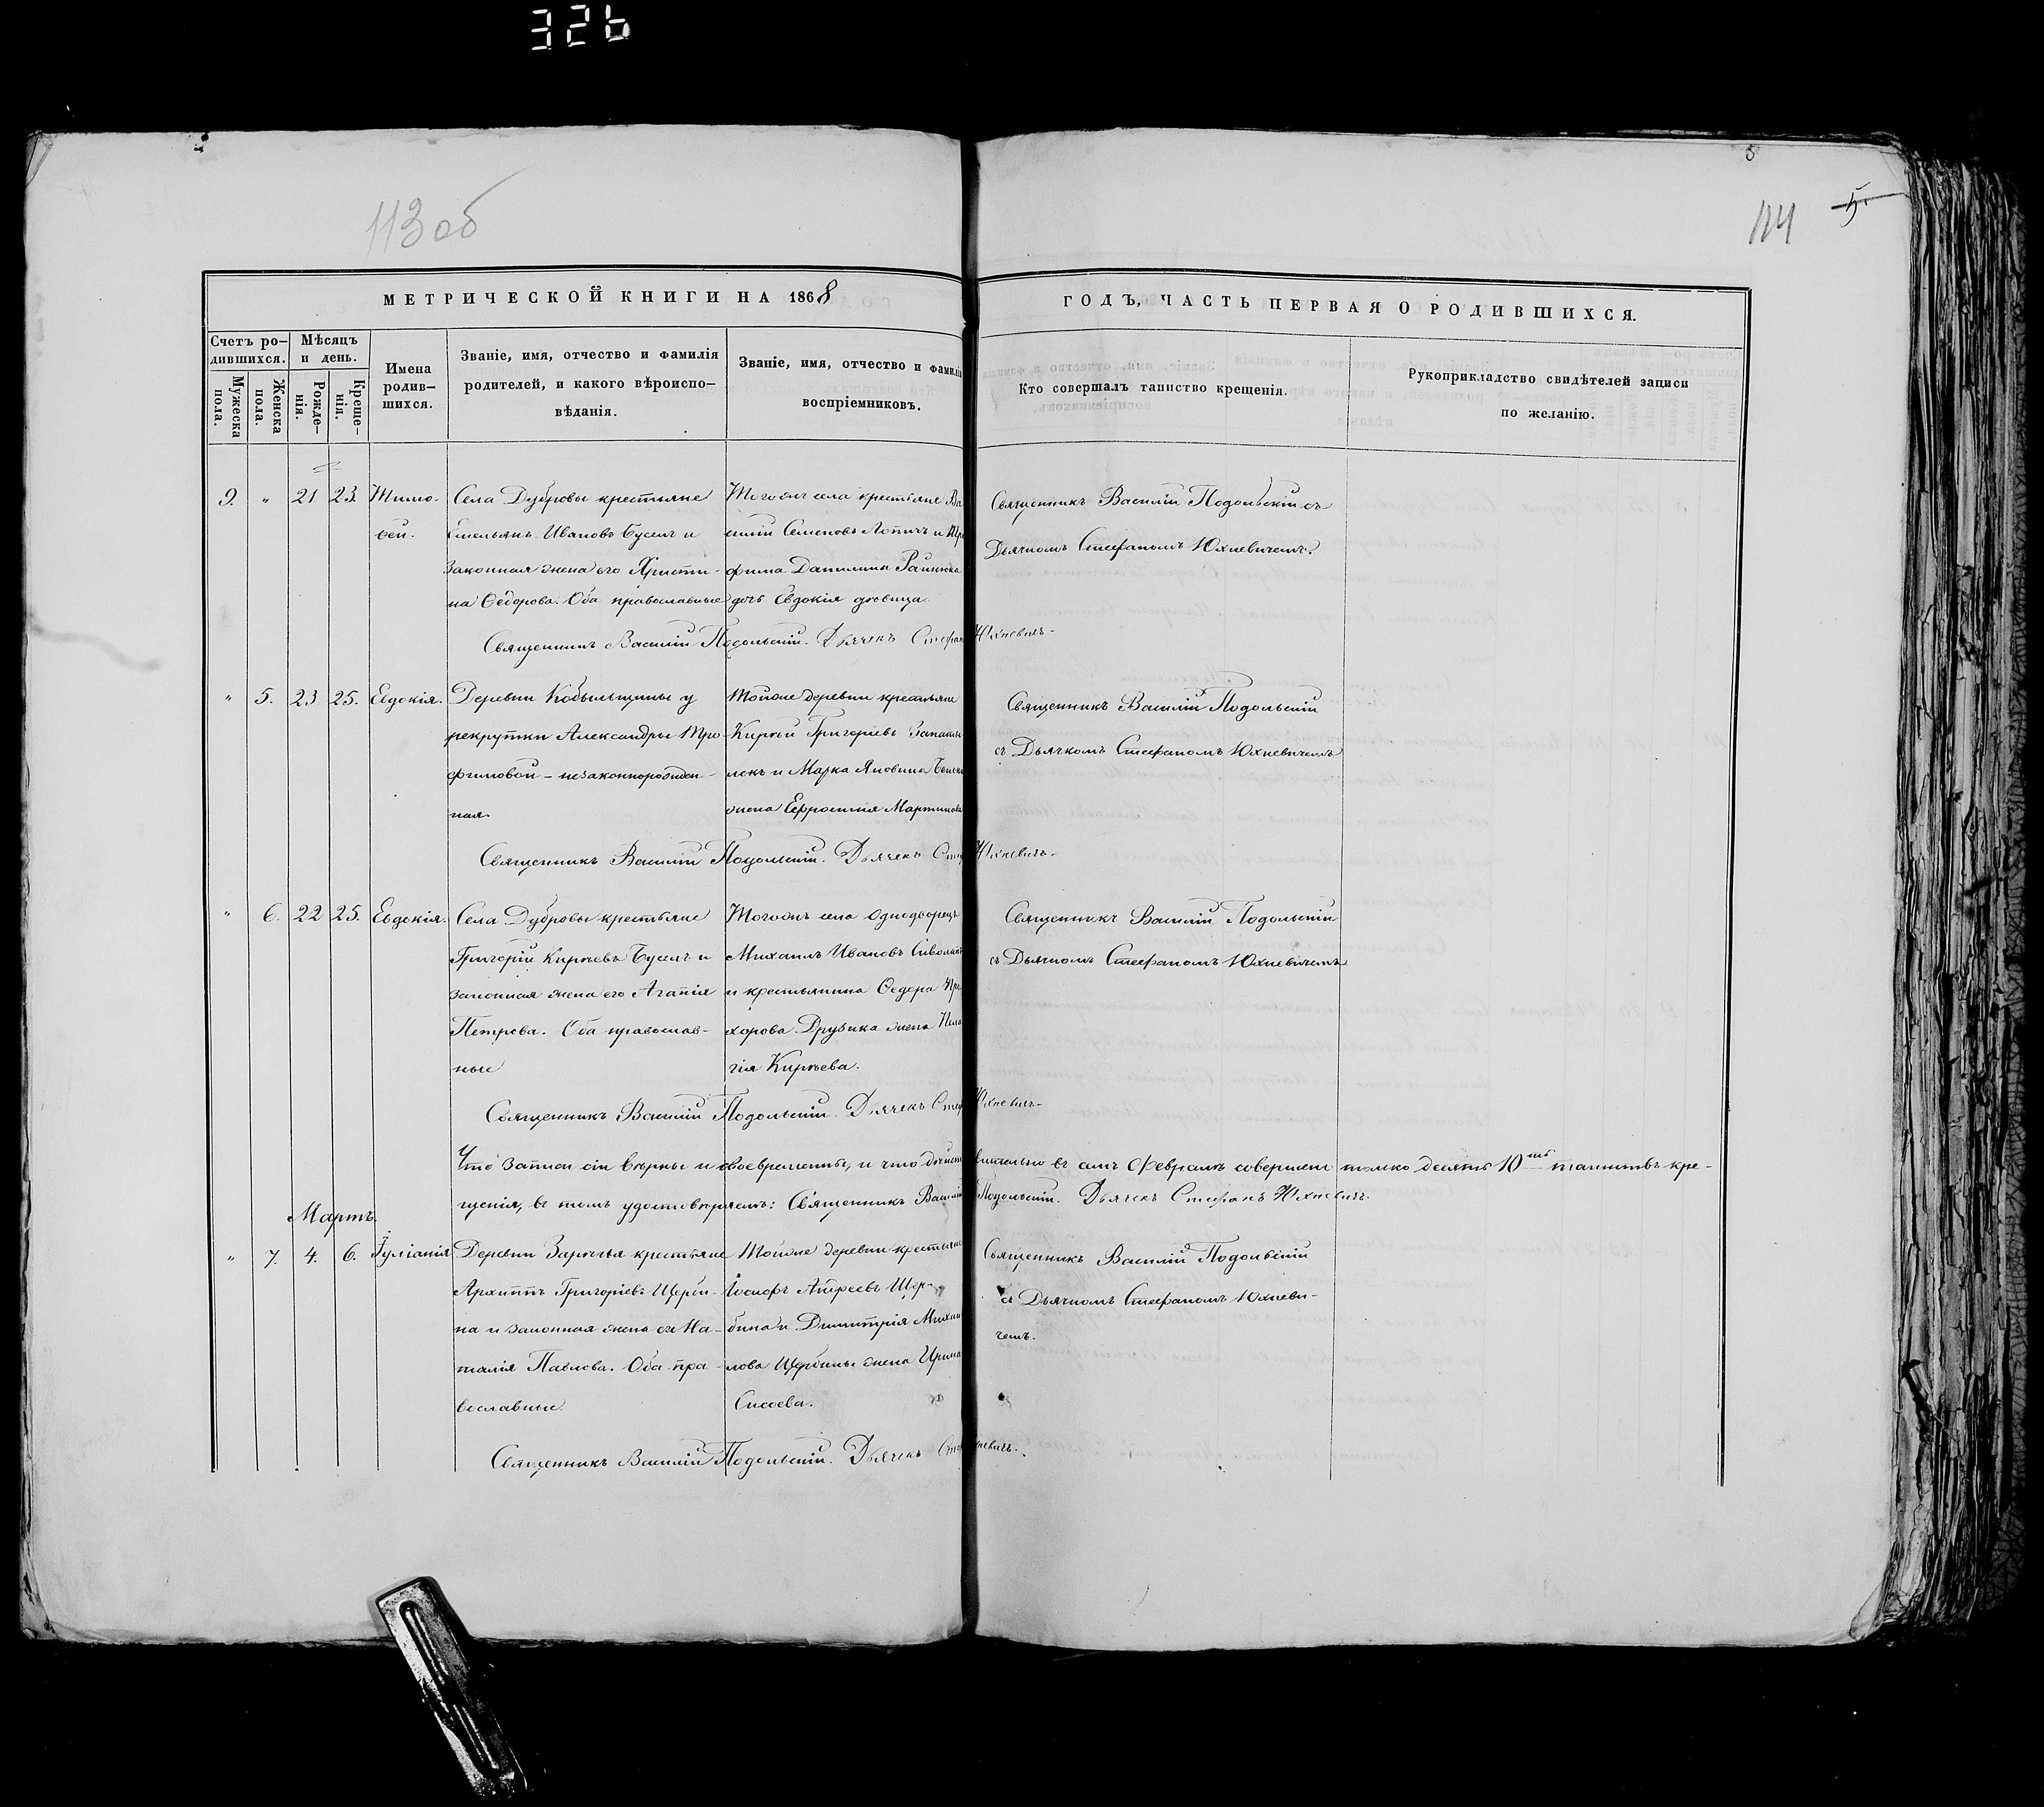 326
113 об
3
114
5.
МЕТРИЧЕСКОЙ КНИГИ НА 1868
ГОДЪ, ЧАСТЬ ПЕРВАЯ О РОДИВШИХСЯ.
Счетъ ро-
дившихся.
Мужеска
пола.
Женска
пола.
Мѣсяцъ
и день.
Рожде-
нія.
Креще-
нія.
Имена
родив-
шихся.
Званіе, имя, отчество и фамилія
родителей, и какого вѣроиспо-
вѣданія.
Званіе, имя, отчество и фамилі
воспріемниковъ.
Кто совершалъ таинство крещенія.
Рукоприкладство свидѣтелей записи
по желанію.
9. " 21 23. Тимо-
ѳей.
Села Дубровы крестьяне
Емельянъ Ивановъ Буселъ и
законная жена его Христи-
на Ѳедорова. Оба православные
Тогожъ села крестьяне Ва
силій Семеновъ Лопичъ и Тро
фима Данилина
дочь Евдокія дѣвица.
Священникъ Василій Подольскій съ
Дьячкомъ Стефаномъ Юхневичемъ.
Священникъ Василій Подольскій. Дьячекъ Стефан Юхневичъ.
" 5. 23 25. Евдокія.
Деревни Кобыльщины у
рекрутки Александры Тро-
фимовой - незаконнорожден-
ная.
Тойже деревни крестьяне
Кирѣй Григоріевъ
и Марка
жена Ефросинія Мартинова
Священникъ Василій Подольскій
съ Дьячкомъ Стефаномъ Юхневичемъ
Священникъ Василій Подольскій. Дьячекъ Стеф Юхневичъ.
" 6. 22 25. Евдокія.
Села Дубровы крестьяне
Григорій Кирѣевъ Буселъ и
законная жена его Агапія
Петрова. Оба православ-
ные
Тогожъ села однодворецъ
Михаилъ Ивановъ
и крестьянина Ѳедора Про
хорова Друбика жена Пела
гія Кирѣева.
Священникъ Василій Подольскій
съ Дьячкомъ Стефаномъ Юхневичемъ
Священникъ Василій Подольскій. Дьячекъ Стеф Юхневичъ.
Что записи сіи вѣрны и своевременны, и что дѣйствительно въ семъ Февралѣ совершено только десять 10ть таинствъ кре-
щенія, въ томъ удостовѣряемъ: Священникъ Василій Подольскій. Дьячекъ Стефанъ Юхневичъ.
Мартъ.
" 7. 4. 6. Іуліанія
Деревни Зарѣчья крестьяне
Архиппъ Григоріевъ Щерби-
на и законная жена его На-
талія Павлова. Оба пра-
вославные.
Тойже деревни крестьяне
Іосифъ Андреевъ Щер-
бина и Димитрія Михаи
лова Щербины жена Ирина
Сисоева.
Священникъ Василій Подольскій
съ Дьячкомъ Стефаномъ Юхневи-
чемъ.
Священникъ Василій Подольскій. Дьячекъ Стеф хневичъ.